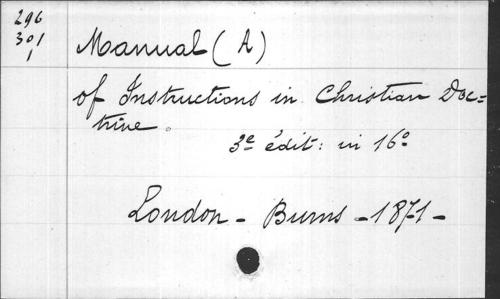 296
301
1
Manual (A)
of Instructions in Christian Doc=
trine.
3e édit: in 16o
London - Burns - 1871 -